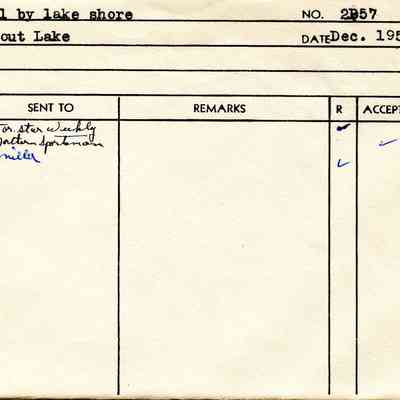 l by lake shore NO. 2B57
out Lake DATE Dec. 195
SENT TO REMARKS R ACCEPT
or. Star Weekly ✓
orthern Sportsman ✓
miller ✓